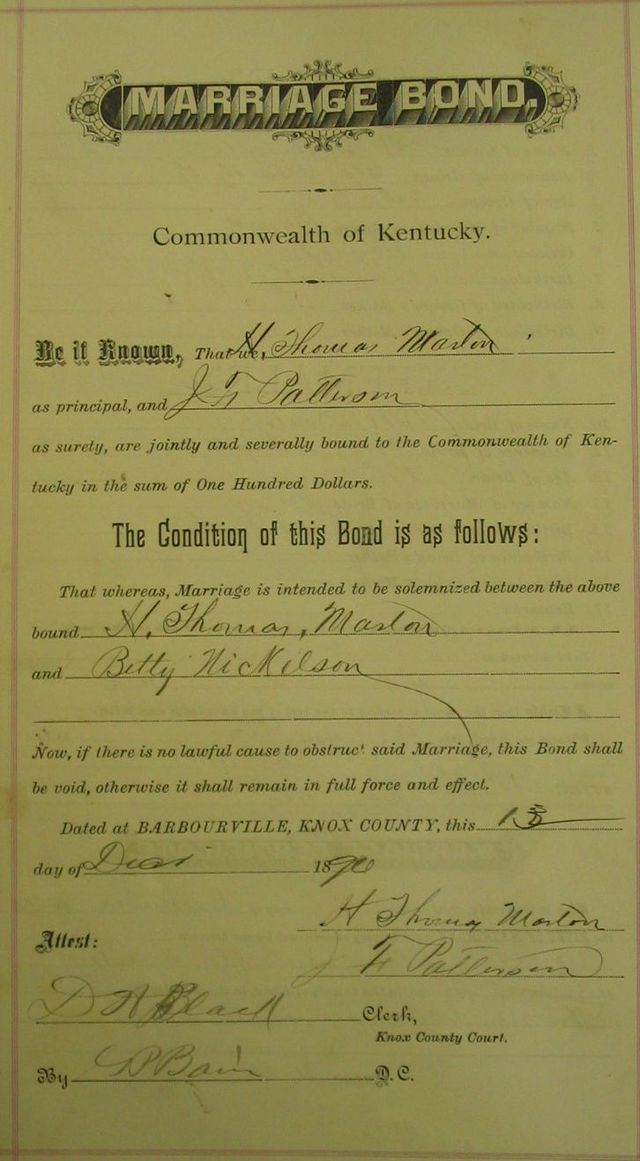 MARRIAGE BOND.
Commonwealth of Kentucky.
Be it Known, That we, H. Thomas Maston
as principal, and J F Patterson
as surety, are jointly and severally bound to the Commonwealth of Ken-
tucky in the sum of One Hundred Dollars.
The Condition of this Bond is as follows:
That whereas, Marriage is intended to be solemnized between the above
bound H. Thomas, Maston
and Betty Nickelson
Now, if there is no lawful cause to obstruct said Marriage, this Bond shall
be void, otherwise it shall remain in full force and effect.
Dated at BARBOURVILLE, KNOX COUNTY, this 13
day of 1890
H Thomas Maston
Attest:
J F Patterson
D H Black Clerk,
Knox County Court.
By Bain D. C.